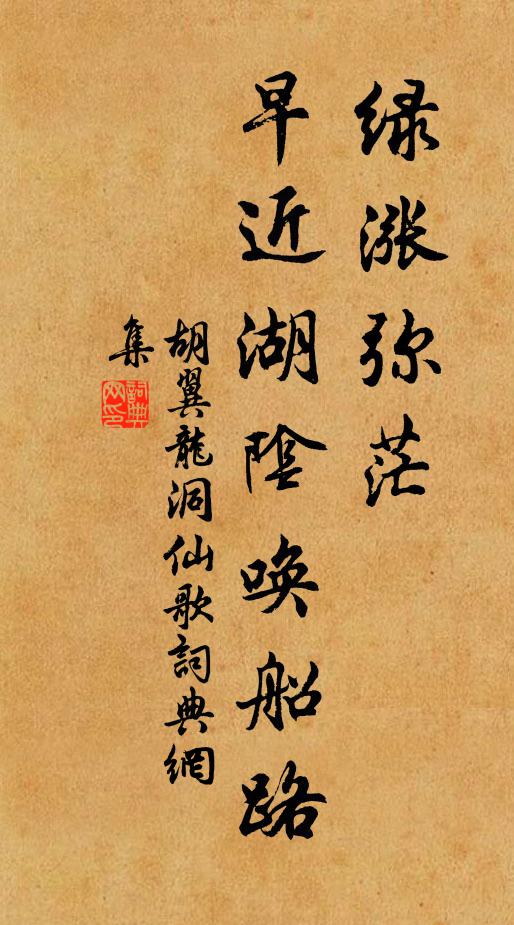 绿涨弥茫
早近湖陰唤船路
胡翼龍洞仙歌詞典網
集
詞典网印